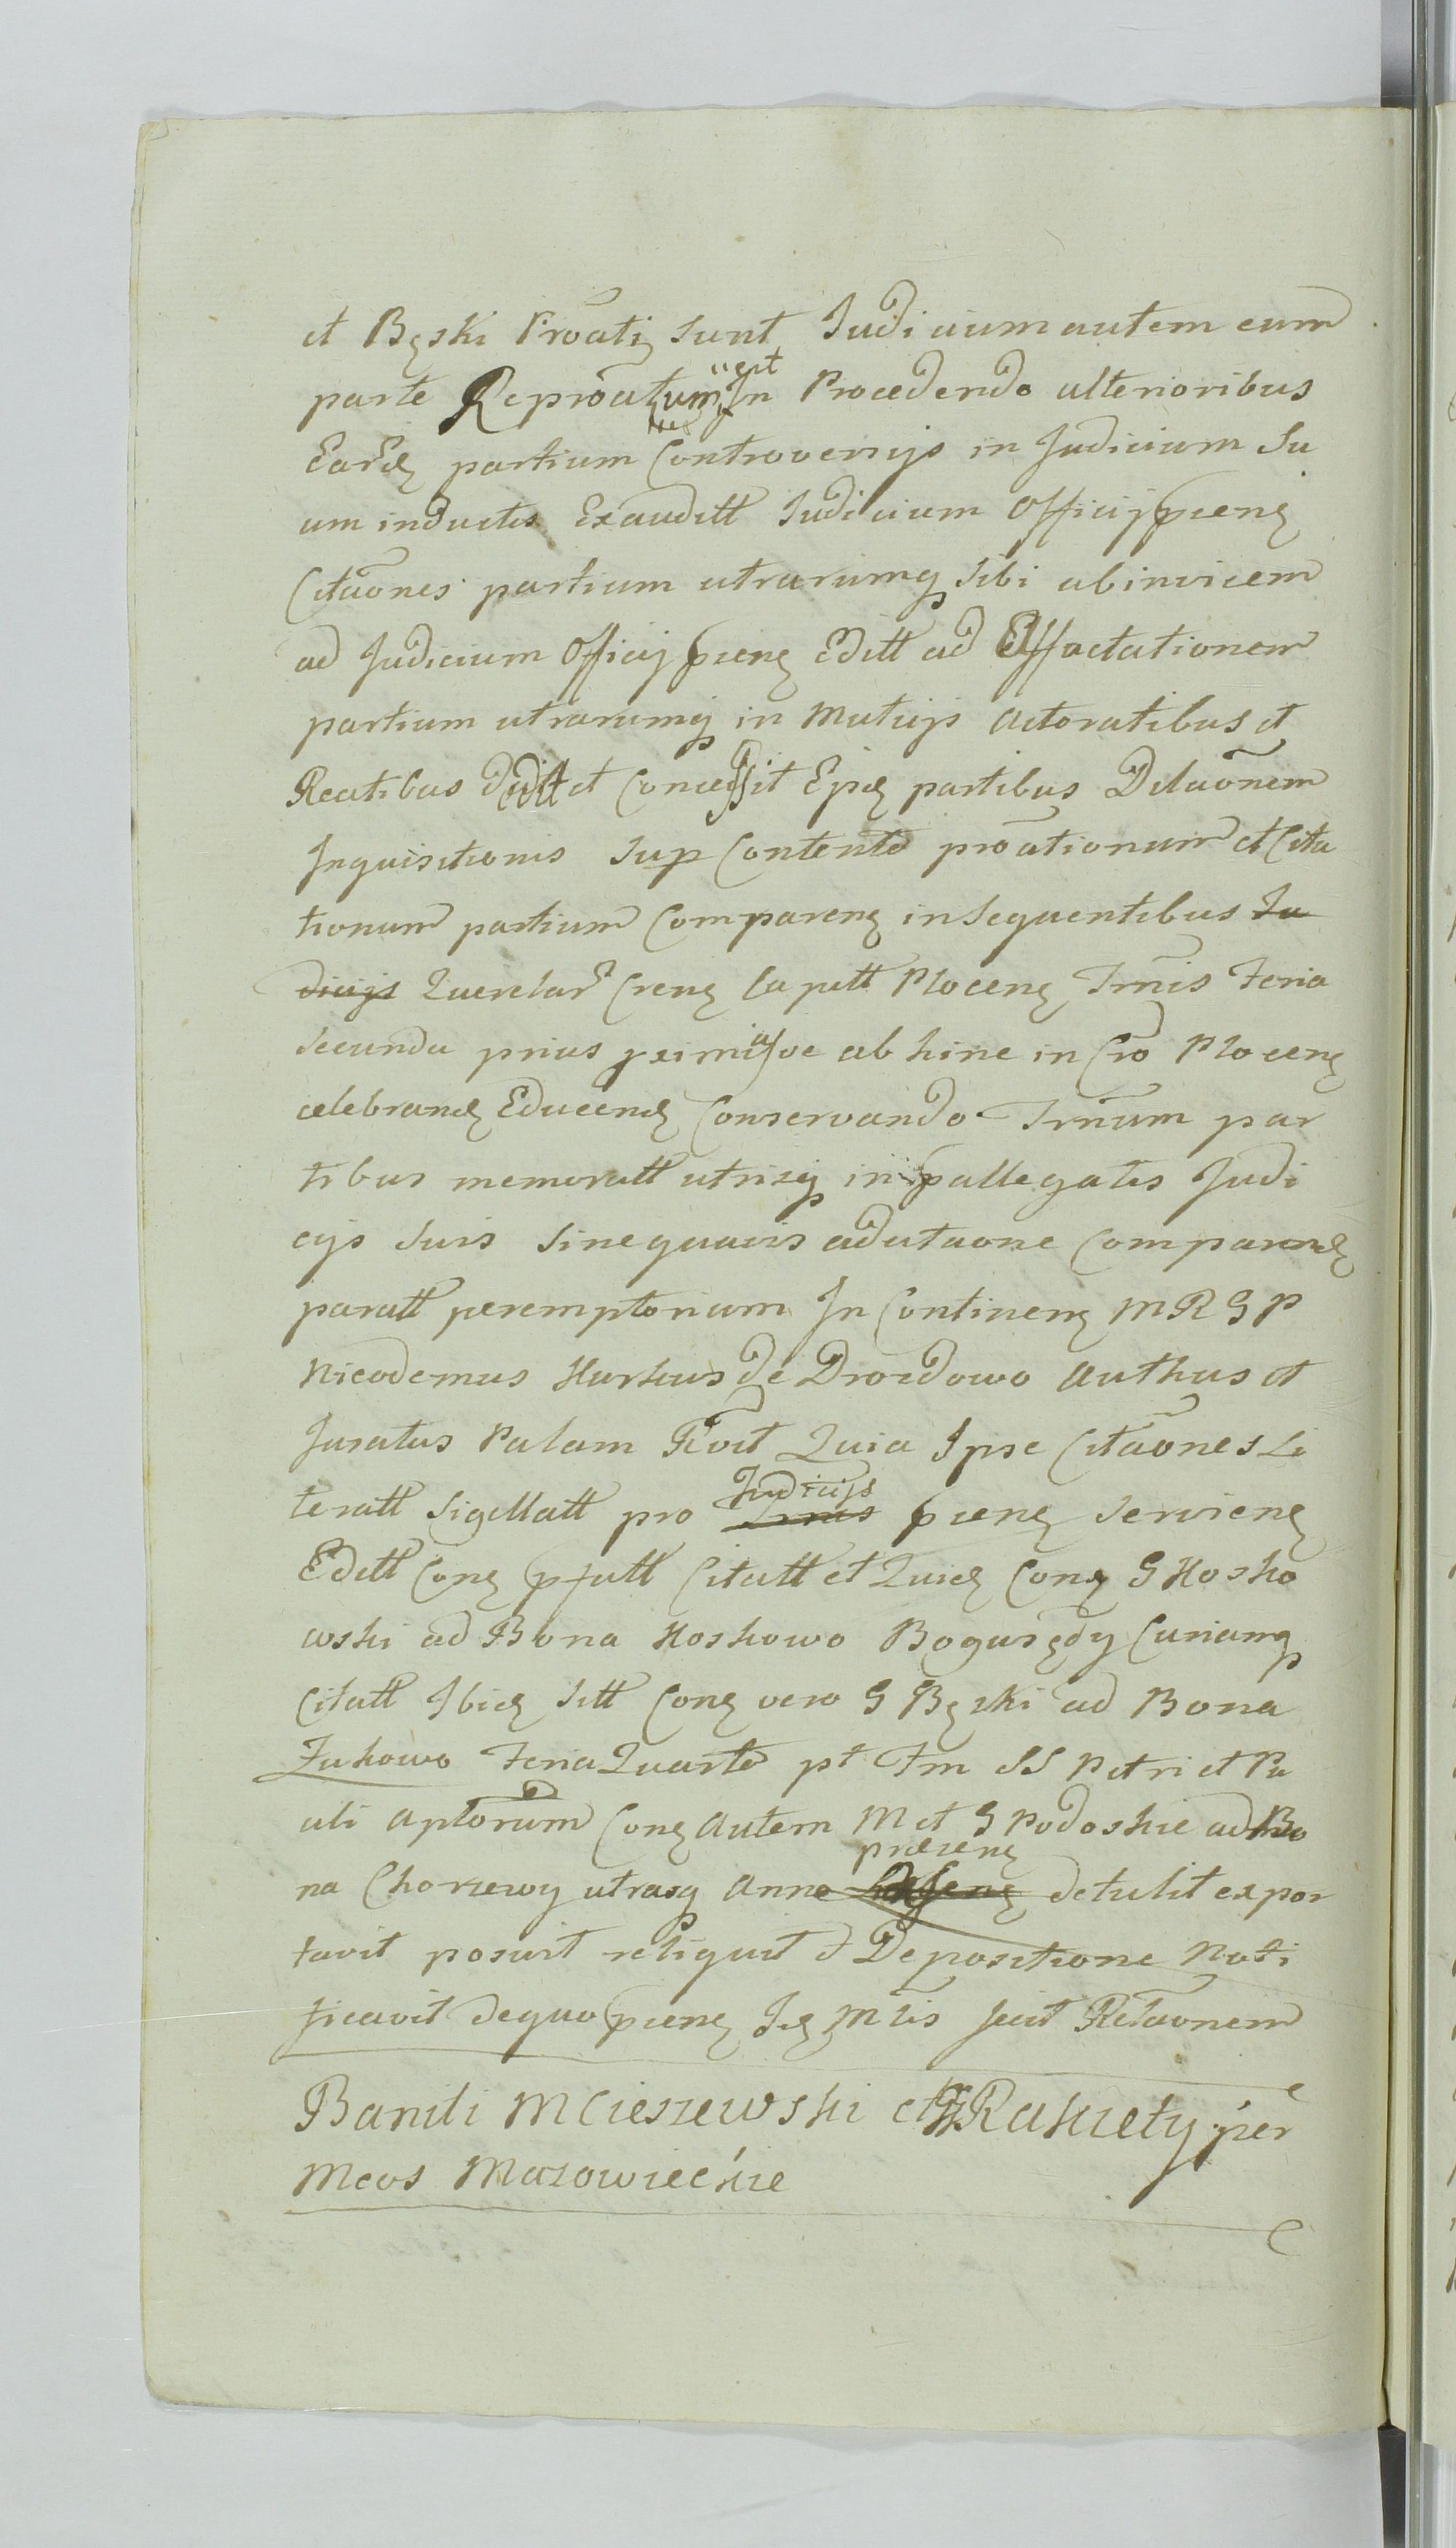 et Bęski Proatį sunt Judicium autem cum
parte Reproatum est In Procedendo ulterioribus
Earę partium Controversijs in Judicium Su
um inductis Exauditt Judicium Officij pseng
Citaones partium utrarumq sibi abinvicem
ad Judicium Officij pseng Editt ad Affectationem
partium utrarumq in Mutuis Actoratibus et
Reatibus dedit et Concessit Epię partibus Dilaonem
Inquisitionis sup Contento proationum et Cita
tionum partium Compareng insequentibus Ju
dicijs Querelar Creng Capitt Ploceng Trnis Feria
Secunda prius proxime ab hinc in Cro Ploceng
celebrandę Educendę Conservando Trnum par
tibus memoratt utrisq in pallegatis Judi
cijs suis sine quavis adcitaone Comparendę
paratt peremptorium In Contineng M R G P
Nicodemus Kurkus de Drozdowo Authus et
Juratus Palam Rvit Quia Ipse Citaones Li
teratt Sigillatt pro Trnis Judicijs pseng Servieng
Editt Cong pfatt Citatt et Quidę Cong G Kosko
wski ad Bona Koskowo Bogusędy Curiamq
Citatt Ibidę sitt Cong vero G Bęski ad Bona
Żukowo Feria Quarta pt Fm SS Petri et Pa
uli Aplorum Cong Autem M et G Podoskie ad Bo
na Chorzewy utrasq Anno præseng detulit expor
tavit posuit reliquit d Depositione Noti
ficavit dequo pseng Idę Mlis fecit Relaonem
Baniti M Cieszewski et G Rakiety per
Mcos Mazowieckie